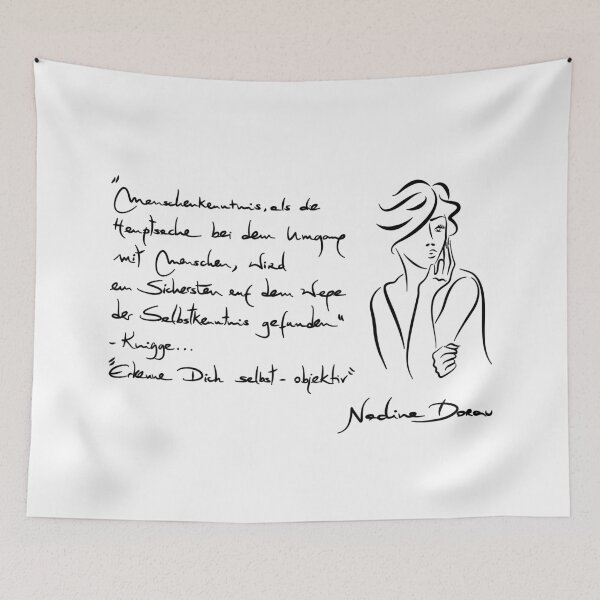 "Menschenkenntnis, als die
Hauptsache bei dem Umgang
mit Menschen, wird
am Sichersten auf dem Wege
der Selbstkenntnis gefunden"
- Knigge...
"Erkenne Dich selbst - objektiv"
Nadine Dorau